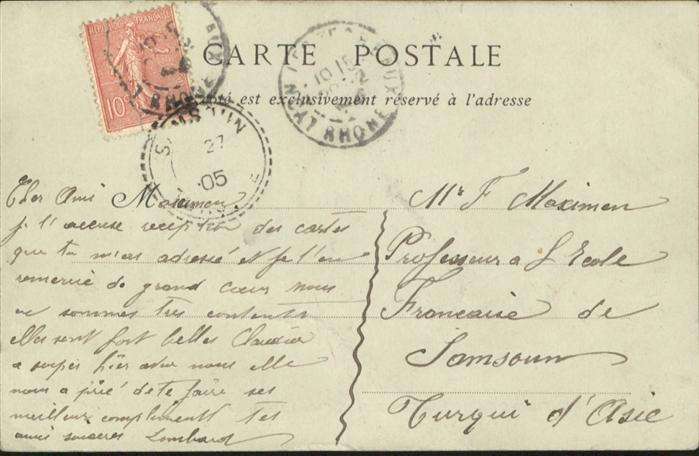 CARTE POSTALE
est exclusivement réservé à l'adresse
REPUBLIQUE FRANÇAISE
10
LYON RHONE
LYON RHONE
SAMSOUN
27
05
Cher Ami Maximen
je t'accuse reception des cartes
que tu m'as adressé et je t'en
remercie de grand cœur nous
en sommes tres contents
elles sont fort belles Claudia
a souper hier avec nous elle
nous a prié de te faire ses
meilleurs compliments tes
amis sinceres Lombard
Mr F Maximen
Professeur a L Ecole
Francaise de
Samsoun
Turqui d'Asie